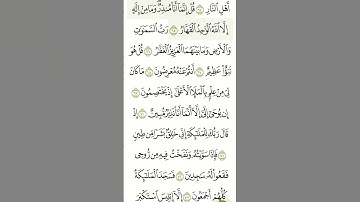 أَهْلِ ٱلنَّارِ ٦٤ قُلْ إِنَّمَآ أَنَا۠ مُنذِرٌ وَمَا مِنْ إِلَٰهٍ
إِلَّا ٱللَّهُ ٱلْوَٰحِدُ ٱلْقَهَّارُ ٦٥ رَبُّ ٱلسَّمَٰوَٰتِ
وَٱلْأَرْضِ وَمَا بَيْنَهُمَا ٱلْعَزِيزُ ٱلْغَفَّٰرُ ٦٦ قُلْ هُوَ
نَبَؤٌا۟ عَظِيمٌ ٦٧ أَنتُمْ عَنْهُ مُعْرِضُونَ ٦٨ مَا كَانَ
لِىَ مِنْ عِلْمٍۭ بِٱلْمَلَإِ ٱلْأَعْلَىٰٓ إِذْ يَخْتَصِمُونَ ٦٩
إِن يُوحَىٰٓ إِلَىَّ إِلَّآ أَنَّمَآ أَنَا۠ نَذِيرٌ مُّبِينٌ ٧٠ إِذْ
قَالَ رَبُّكَ لِلْمَلَٰٓئِكَةِ إِنِّى خَٰلِقٌۢ بَشَرًا مِّن طِينٍ
٧١ فَإِذَا سَوَّيْتُهُۥ وَنَفَخْتُ فِيهِ مِن رُّوحِى
فَقَعُوا۟ لَهُۥ سَٰجِدِينَ ٧٢ فَسَجَدَ ٱلْمَلَٰٓئِكَةُ
كُلُّهُمْ أَجْمَعُونَ ٧٣ إِلَّآ إِبْلِيسَ ٱسْتَكْبَرَ